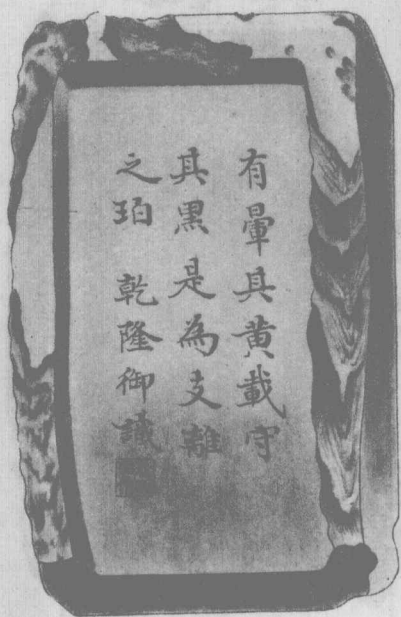 有暈其黃載守
其黑是為支離
之珀 乾隆御識